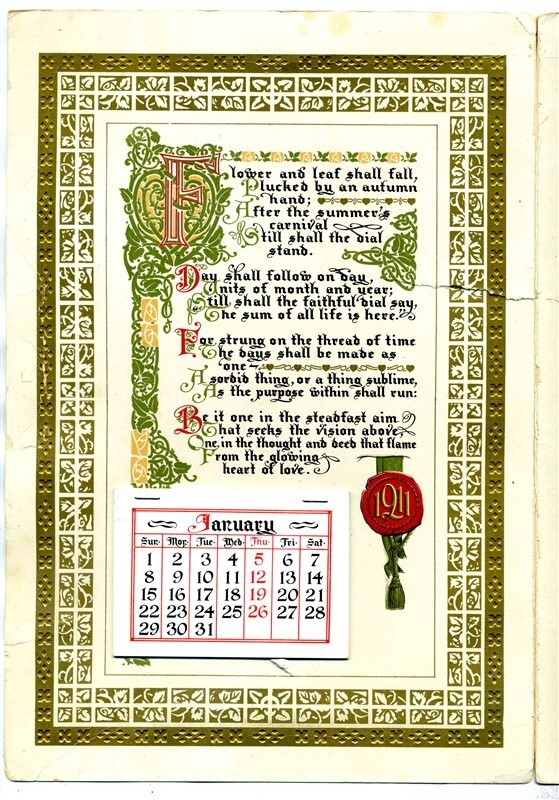 Flower and leaf shall fall,
Plucked by an autumn
hand;
After the summer's
carnival
Still shall the dial
stand.
Day shall follow on day,
Units of month and year;
Still shall the faithful dial say,
The sum of all life is here.
For strung on the thread of time
The days shall be made as
one
A sordid thing, or a thing sublime,
As the purpose within shall run:
Be it one in the steadfast aim
That seeks the vision above,
One, in the thought and deed that flame
From the glowing
heart of love.
1911
January
Sun· Mon· Tue· Wed· Thu· Fri· Sat·
1 2 3 4 5 6 7
8 9 10 11 12 13 14
15 16 17 18 19 20 21
22 23 24 25 26 27 28
29 30 31